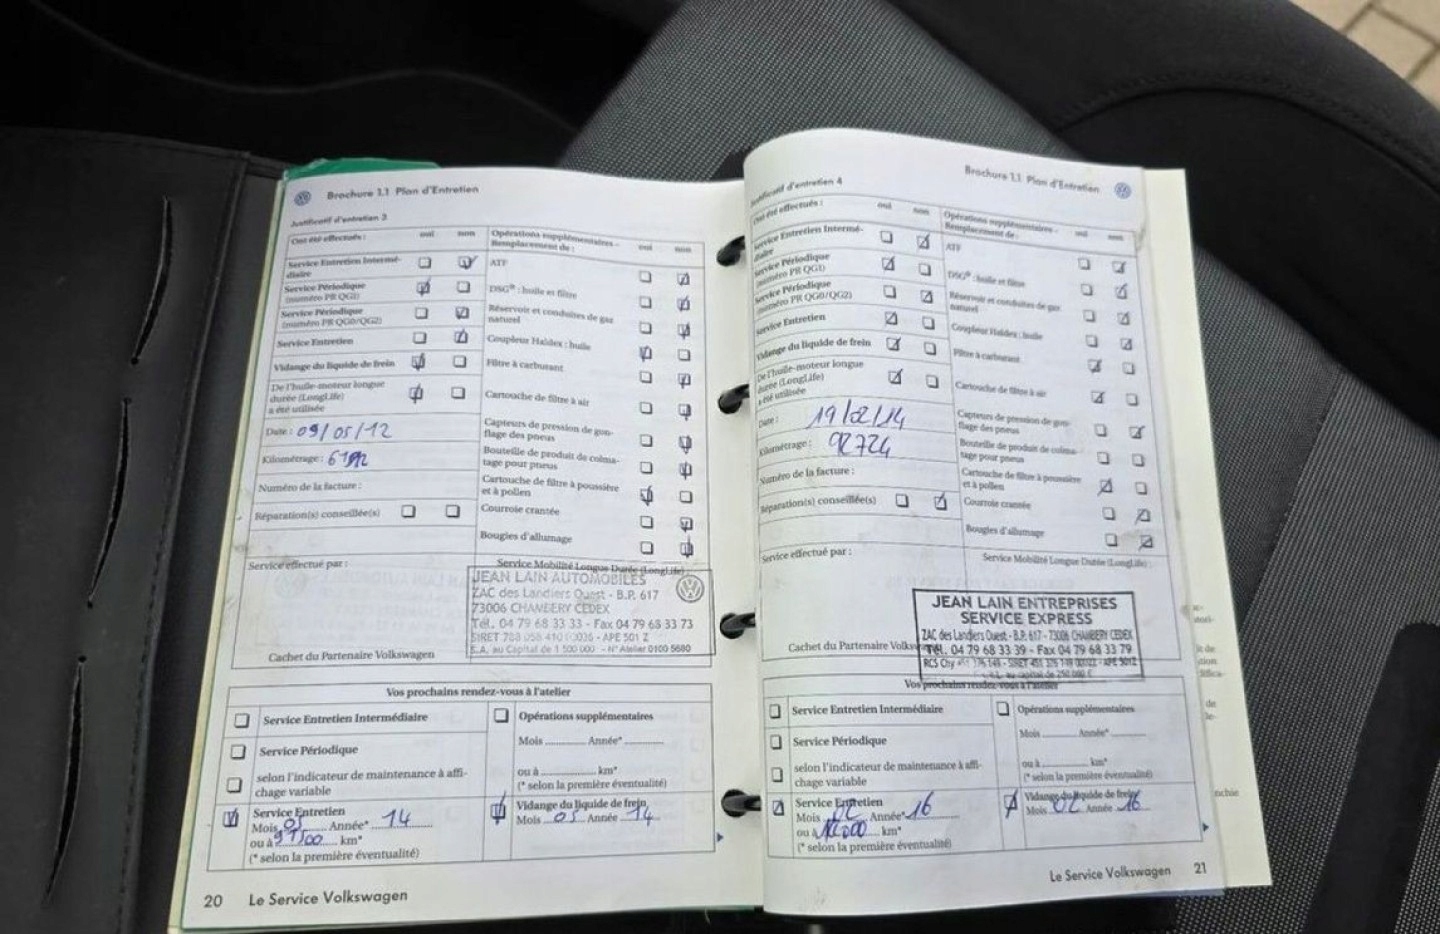 Brochure 1.1 Plan d'Entretien
Justificatif d'entretien 3
Ont été effectués : oui non
Service Entretien Intermé-
diaire
Service Périodique
(numéro PR QG1)
Service Périodique
(numéro PR QG0/QG2)
Service Entretien
Vidange du liquide de frein
De l'huile-moteur longue
durée (LongLife)
a été utilisée
Date : 09/05/12
Kilométrage :
Numéro de la facture :
Réparation(s) conseillée(s)
Opérations supplémentaires -
Remplacement de : oui non
ATF
DSG® : huile et filtre
Réservoir et conduites de gaz
naturel
Coupleur Haldex : huile
Filtre à carburant
Cartouche de filtre à air
Capteurs de pression de gon-
flage des pneus
Bouteille de produit de colma-
tage pour pneus
Cartouche de filtre à poussière
et à pollen
Courroie crantée
Bougies d'allumage
Service effectué par :
Service Mobilité Longue Durée (LongLife) :
JEAN LAIN AUTOMOBILES
ZAC des Landiers Ouest - B.P. 617
73006 CHAMBERY CEDEX
Tél. 04 79 68 33 33 - Fax 04 79 68 33 73
S.A. au Capital de 1 500 000 - N° Atelier 0100 5680
Cachet du Partenaire Volkswagen
Vos prochains rendez-vous à l'atelier
Service Entretien Intermédiaire
Service Périodique
selon l'indicateur de maintenance à affi-
chage variable
Service Entretien
Mois 05 Année* 14
ou à km*
(* selon la première éventualité)
Opérations supplémentaires
Mois Année*
ou à km*
(* selon la première éventualité)
Vidange du liquide de frein
Mois 05 Année 14
20 Le Service Volkswagen
Brochure 1.1 Plan d'Entretien
Justificatif d'entretien 4
Ont été effectués : oui non
Service Entretien Intermé-
diaire
Service Périodique
(numéro PR QG1)
Service Périodique
(numéro PR QG0/QG2)
Service Entretien
Vidange du liquide de frein
De l'huile-moteur longue
durée (LongLife)
a été utilisée
Date : 19/02/14
Kilométrage : 92724
Numéro de la facture :
Réparation(s) conseillée(s)
Opérations supplémentaires -
Remplacement de : oui non
ATF
DSG® : huile et filtre
Réservoir et conduites de gaz
naturel
Coupleur Haldex : huile
Filtre à carburant
Cartouche de filtre à air
Capteurs de pression de gon-
flage des pneus
Bouteille de produit de colma-
tage pour pneus
Cartouche de filtre à poussière
et à pollen
Courroie crantée
Bougies d'allumage
Service effectué par :
Service Mobilité Longue Durée (LongLife) :
JEAN LAIN ENTREPRISES
SERVICE EXPRESS
ZAC des Landiers Ouest - B.P. 617 - 73006 CHAMBERY CEDEX
Tél. 04 79 68 33 39 - Fax 04 79 68 33 79
Cachet du Partenaire
Vos prochains rendez-vous à l'atelier
Service Entretien Intermédiaire
Service Périodique
selon l'indicateur de maintenance à affi-
chage variable
Service Entretien
Mois 02 Année* 16
ou à km*
(* selon la première éventualité)
Opérations supplémentaires
Mois Année*
ou à km*
(* selon la première éventualité)
Vidange du liquide de frein
Mois 02 Année 16
Le Service Volkswagen 21